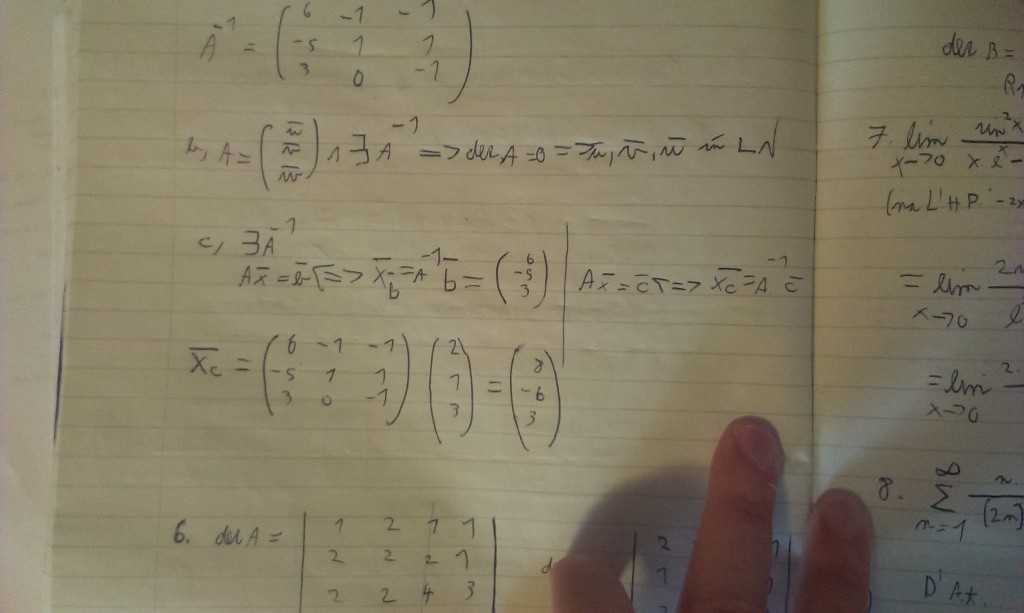 A⁻¹ = ( 6 -1 -1
-5 1 1
3 0 -1 )
b, A = ( ū
v̄
w̄ ) ∧ ∃ A⁻¹ => det A = 0 = ū, v̄, w̄ LN
c, ∃A⁻¹
Ax̄ = b̄ => x̄_b = A⁻¹ b̄ = ( 6
-5
3 )
Ax̄ = c̄ => x̄c = A⁻¹ c̄
x̄c = ( 6 -1 -1
-5 1 1
3 0 -1 ) ( 2
1
3 ) = ( 8
-6
3 )
6. det A = | 1 2 1 1
2 2 2 1
2 2 4 3 |
2
1
det B =
7. lim x→0 sin²x
x eˣ -
(na L'HP -2x
= lim x→0 2
= lim x→0 2.
8. ∞ ∑ n=1 n
(2n)
D'A